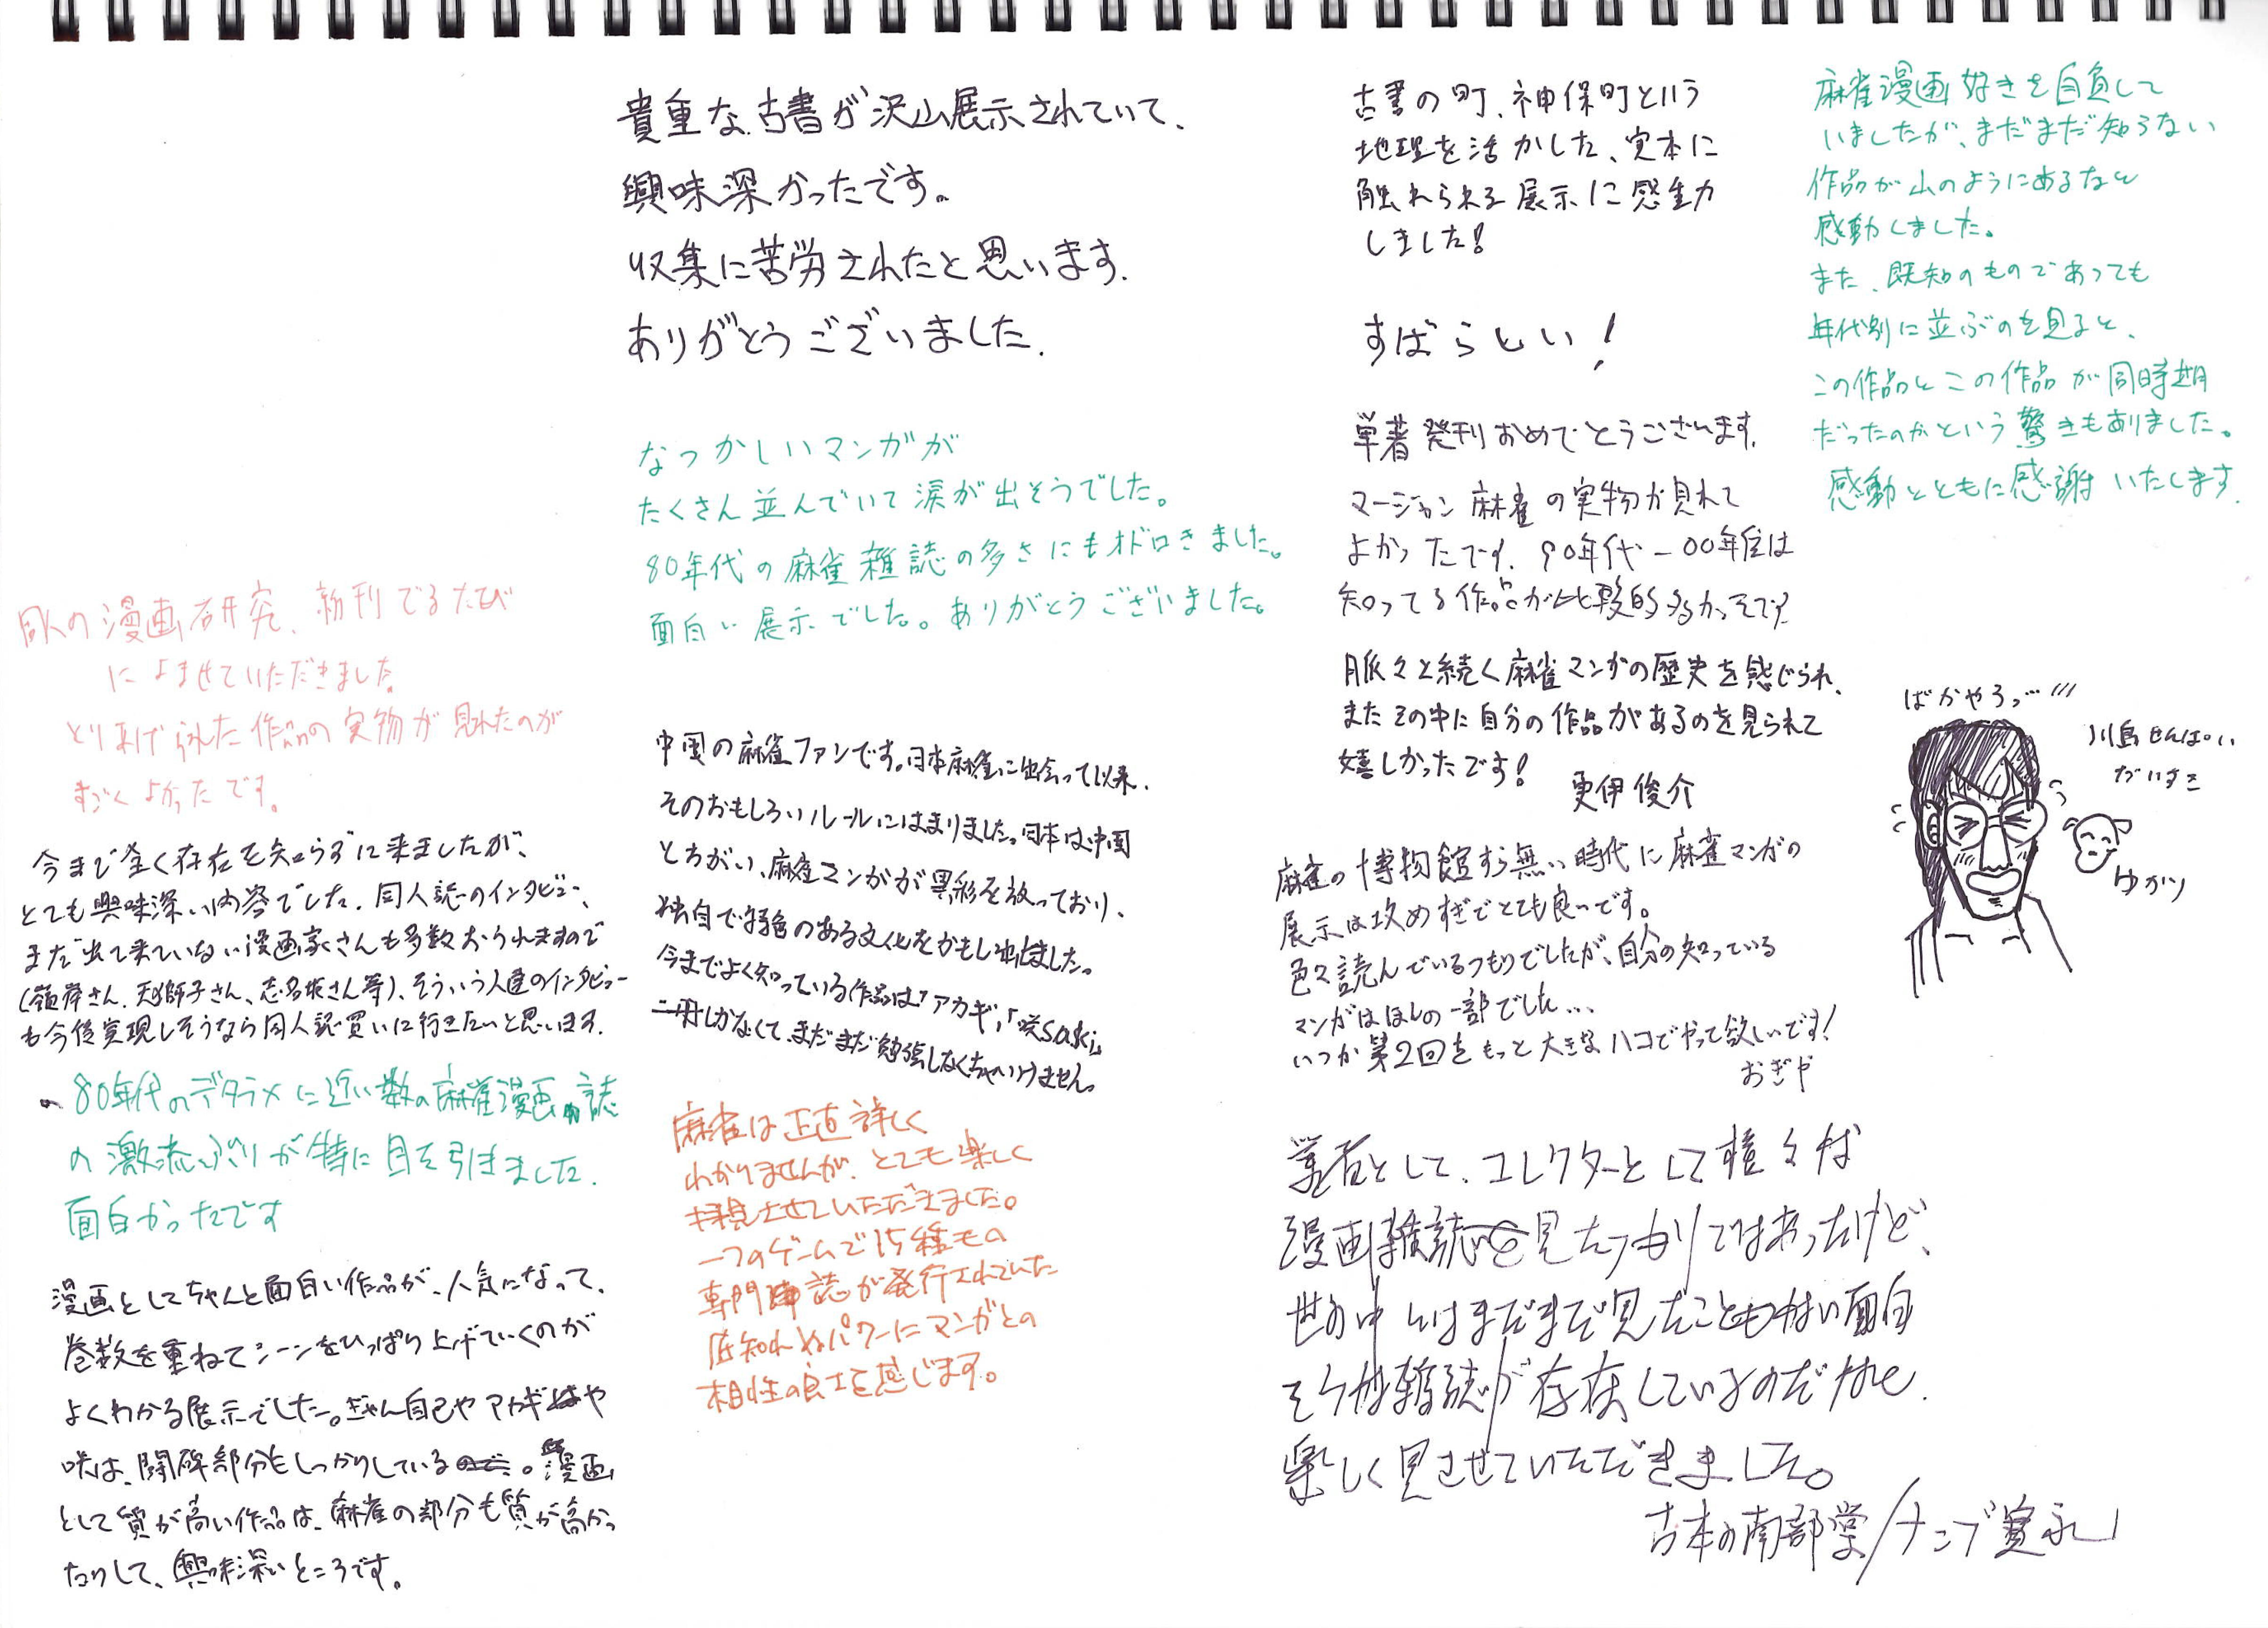 貴重な古書が沢山展示されていて、
興味深かったです。
収集に苦労されたと思います.
ありがとうございました.
なつかしいマンガが
たくさん並んでいて涙が出そうでした。
80年代の麻雀雑誌の多さにもオドロきました。
面白い展示でした。ありがとうございました。
中国の麻雀ファンです。日本麻雀に出会って以来、
そのおもしろいルールにはまりました。日本は中国
とちがい、麻雀マンガが異彩を放っており、
独自で特色のある文化をかもし出しました。
今までよく知っている作品は「アカギ」,「咲Saki」
二冊しかなくて、まだまだ勉強しなくちゃいけません。
麻雀は正直詳しく
わかりませんが、とても楽しく
拝見させていただきました。
一つのゲームで15種もの
専門誌が発行されていた
底知れぬパワーにマンガとの
相性の良さを感じます。
同人の漫画研究、新刊でるたび
によませていただきました。
とりあげられた作品の実物が見れたのが
すごくよかったです。
今まで全く存在を知らずに来ましたが、
とても興味深い内容でした. 同人誌のインタビュー、
まだ出て来ていない漫画家さんも多数おられますので
(嶺岸さん、天獅子さん、志名坂さん等)、そういう人達のインタビュー
も今後実現しそうなら同人誌買いに行きたいと思います.
80年代のデタラメに近い数の麻雀漫画誌
の激流ぶりが特に目を引きました.
面白かったです
漫画としてちゃんと面白い作品が、人気になって、
巻数を重ねてシーンをひっぱり上げていくのが
よくわかる展示でした。ぎゃん自己やアカギや
咲は、闘牌部分もしっかりしている。漫画
として質が高い作品は、麻雀の部分も質が高かっ
たりして、興味深いところです。
古書の町、神保町という
地理を活かした、実本に
触れられる展示に感動
しました!
すばらしい!
単著発刊おめでとうございます.
マージャン麻雀の実物が見れて
よかったです. 90年代-00年位は
知ってる作品が比較的多かったです
脈々と続く麻雀マンガの歴史を感じられ、
またその中に自分の作品があるのを見られて
嬉しかったです!
更伊俊介
麻雀の博物館すら無い時代に麻雀マンガの
展示は攻めすぎでとても良いです。
色々読んでいるつもりでしたが、自分の知っている
マンガはほんの一部でした...
いつか第2回をもっと大きなハコでやって欲しいです!
おぎや
業者として、コレクターとして様々な
漫画雑誌を見たつもりではあったけど、
世の中にはまだまだ見たこともない面白
そうな雑誌が存在しているのだなと.
楽しく見させていただきました。
古本の南部堂/ナンブ寛永
麻雀漫画好きを自負して
いましたが、まだまだ知らない
作品が山のようにあるなと
感動しました。
また、既知のものであっても
年代別に並ぶのを見ると、
この作品とこの作品が同時期
だったのかという驚きもありました。
感動とともに感謝いたします.
ばかやろっ…!!!
川島せんぱい
だいすこ
ゆかり